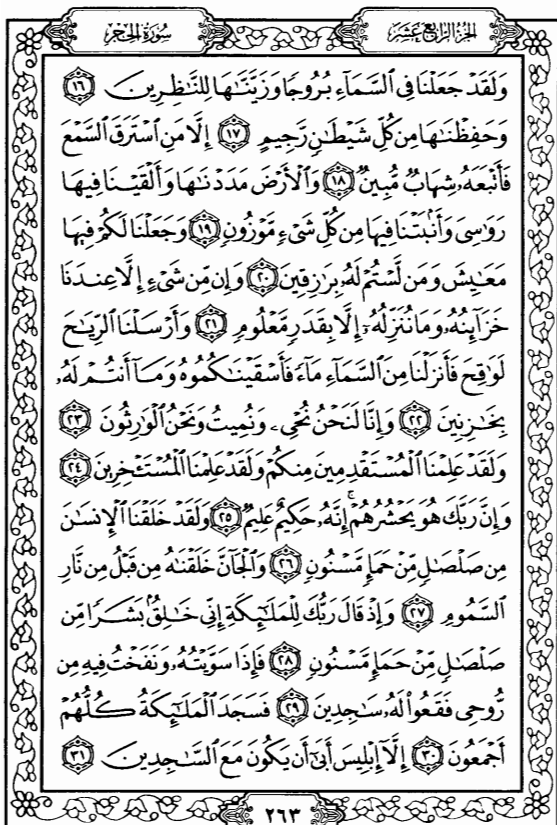 سُورَةُ الحِجْرِ
الجُزْءُ الرَّابِعَ عَشَرَ
وَلَقَدْ جَعَلْنَا فِي ٱلسَّمَآءِ بُرُوجًا وَزَيَّنَّٰهَا لِلنَّٰظِرِينَ ١٦
وَحَفِظْنَٰهَا مِن كُلِّ شَيْطَٰنٍ رَّجِيمٍ ١٧ إِلَّا مَنِ ٱسْتَرَقَ ٱلسَّمْعَ
فَأَتْبَعَهُۥ شِهَابٌ مُّبِينٌ ١٨ وَٱلْأَرْضَ مَدَدْنَٰهَا وَأَلْقَيْنَا فِيهَا
رَوَٰسِىَ وَأَنۢبَتْنَا فِيهَا مِن كُلِّ شَىْءٍ مَّوْزُونٍ ١٩ وَجَعَلْنَا لَكُمْ فِيهَا
مَعَٰيِشَ وَمَن لَّسْتُمْ لَهُۥ بِرَٰزِقِينَ ٢٠ وَإِن مِّن شَىْءٍ إِلَّا عِندَنَا
خَزَآئِنُهُۥ وَمَا نُنَزِّلُهُۥٓ إِلَّا بِقَدَرٍ مَّعْلُومٍ ٢١ وَأَرْسَلْنَا ٱلرِّيَٰحَ
لَوَٰقِحَ فَأَنزَلْنَا مِنَ ٱلسَّمَآءِ مَآءً فَأَسْقَيْنَٰكُمُوهُ وَمَآ أَنتُمْ لَهُۥ
بِخَٰزِنِينَ ٢٢ وَإِنَّا لَنَحْنُ نُحْىِۦ وَنُمِيتُ وَنَحْنُ ٱلْوَٰرِثُونَ ٢٣
وَلَقَدْ عَلِمْنَا ٱلْمُسْتَقْدِمِينَ مِنكُمْ وَلَقَدْ عَلِمْنَا ٱلْمُسْتَـْٔخِرِينَ ٢٤
وَإِنَّ رَبَّكَ هُوَ يَحْشُرُهُمْ ۚ إِنَّهُۥ حَكِيمٌ عَلِيمٌ ٢٥ وَلَقَدْ خَلَقْنَا ٱلْإِنسَٰنَ
مِن صَلْصَٰلٍ مِّنْ حَمَإٍ مَّسْنُونٍ ٢٦ وَٱلْجَآنَّ خَلَقْنَٰهُ مِن قَبْلُ مِن نَّارِ
ٱلسَّمُومِ ٢٧ وَإِذْ قَالَ رَبُّكَ لِلْمَلَٰٓئِكَةِ إِنِّى خَٰلِقٌۢ بَشَرًا مِّن
صَلْصَٰلٍ مِّنْ حَمَإٍ مَّسْنُونٍ ٢٨ فَإِذَا سَوَّيْتُهُۥ وَنَفَخْتُ فِيهِ مِن
رُّوحِى فَقَعُوا۟ لَهُۥ سَٰجِدِينَ ٢٩ فَسَجَدَ ٱلْمَلَٰٓئِكَةُ كُلُّهُمْ
أَجْمَعُونَ ٣٠ إِلَّآ إِبْلِيسَ أَبَىٰٓ أَن يَكُونَ مَعَ ٱلسَّٰجِدِينَ ٣١
٢٦٣